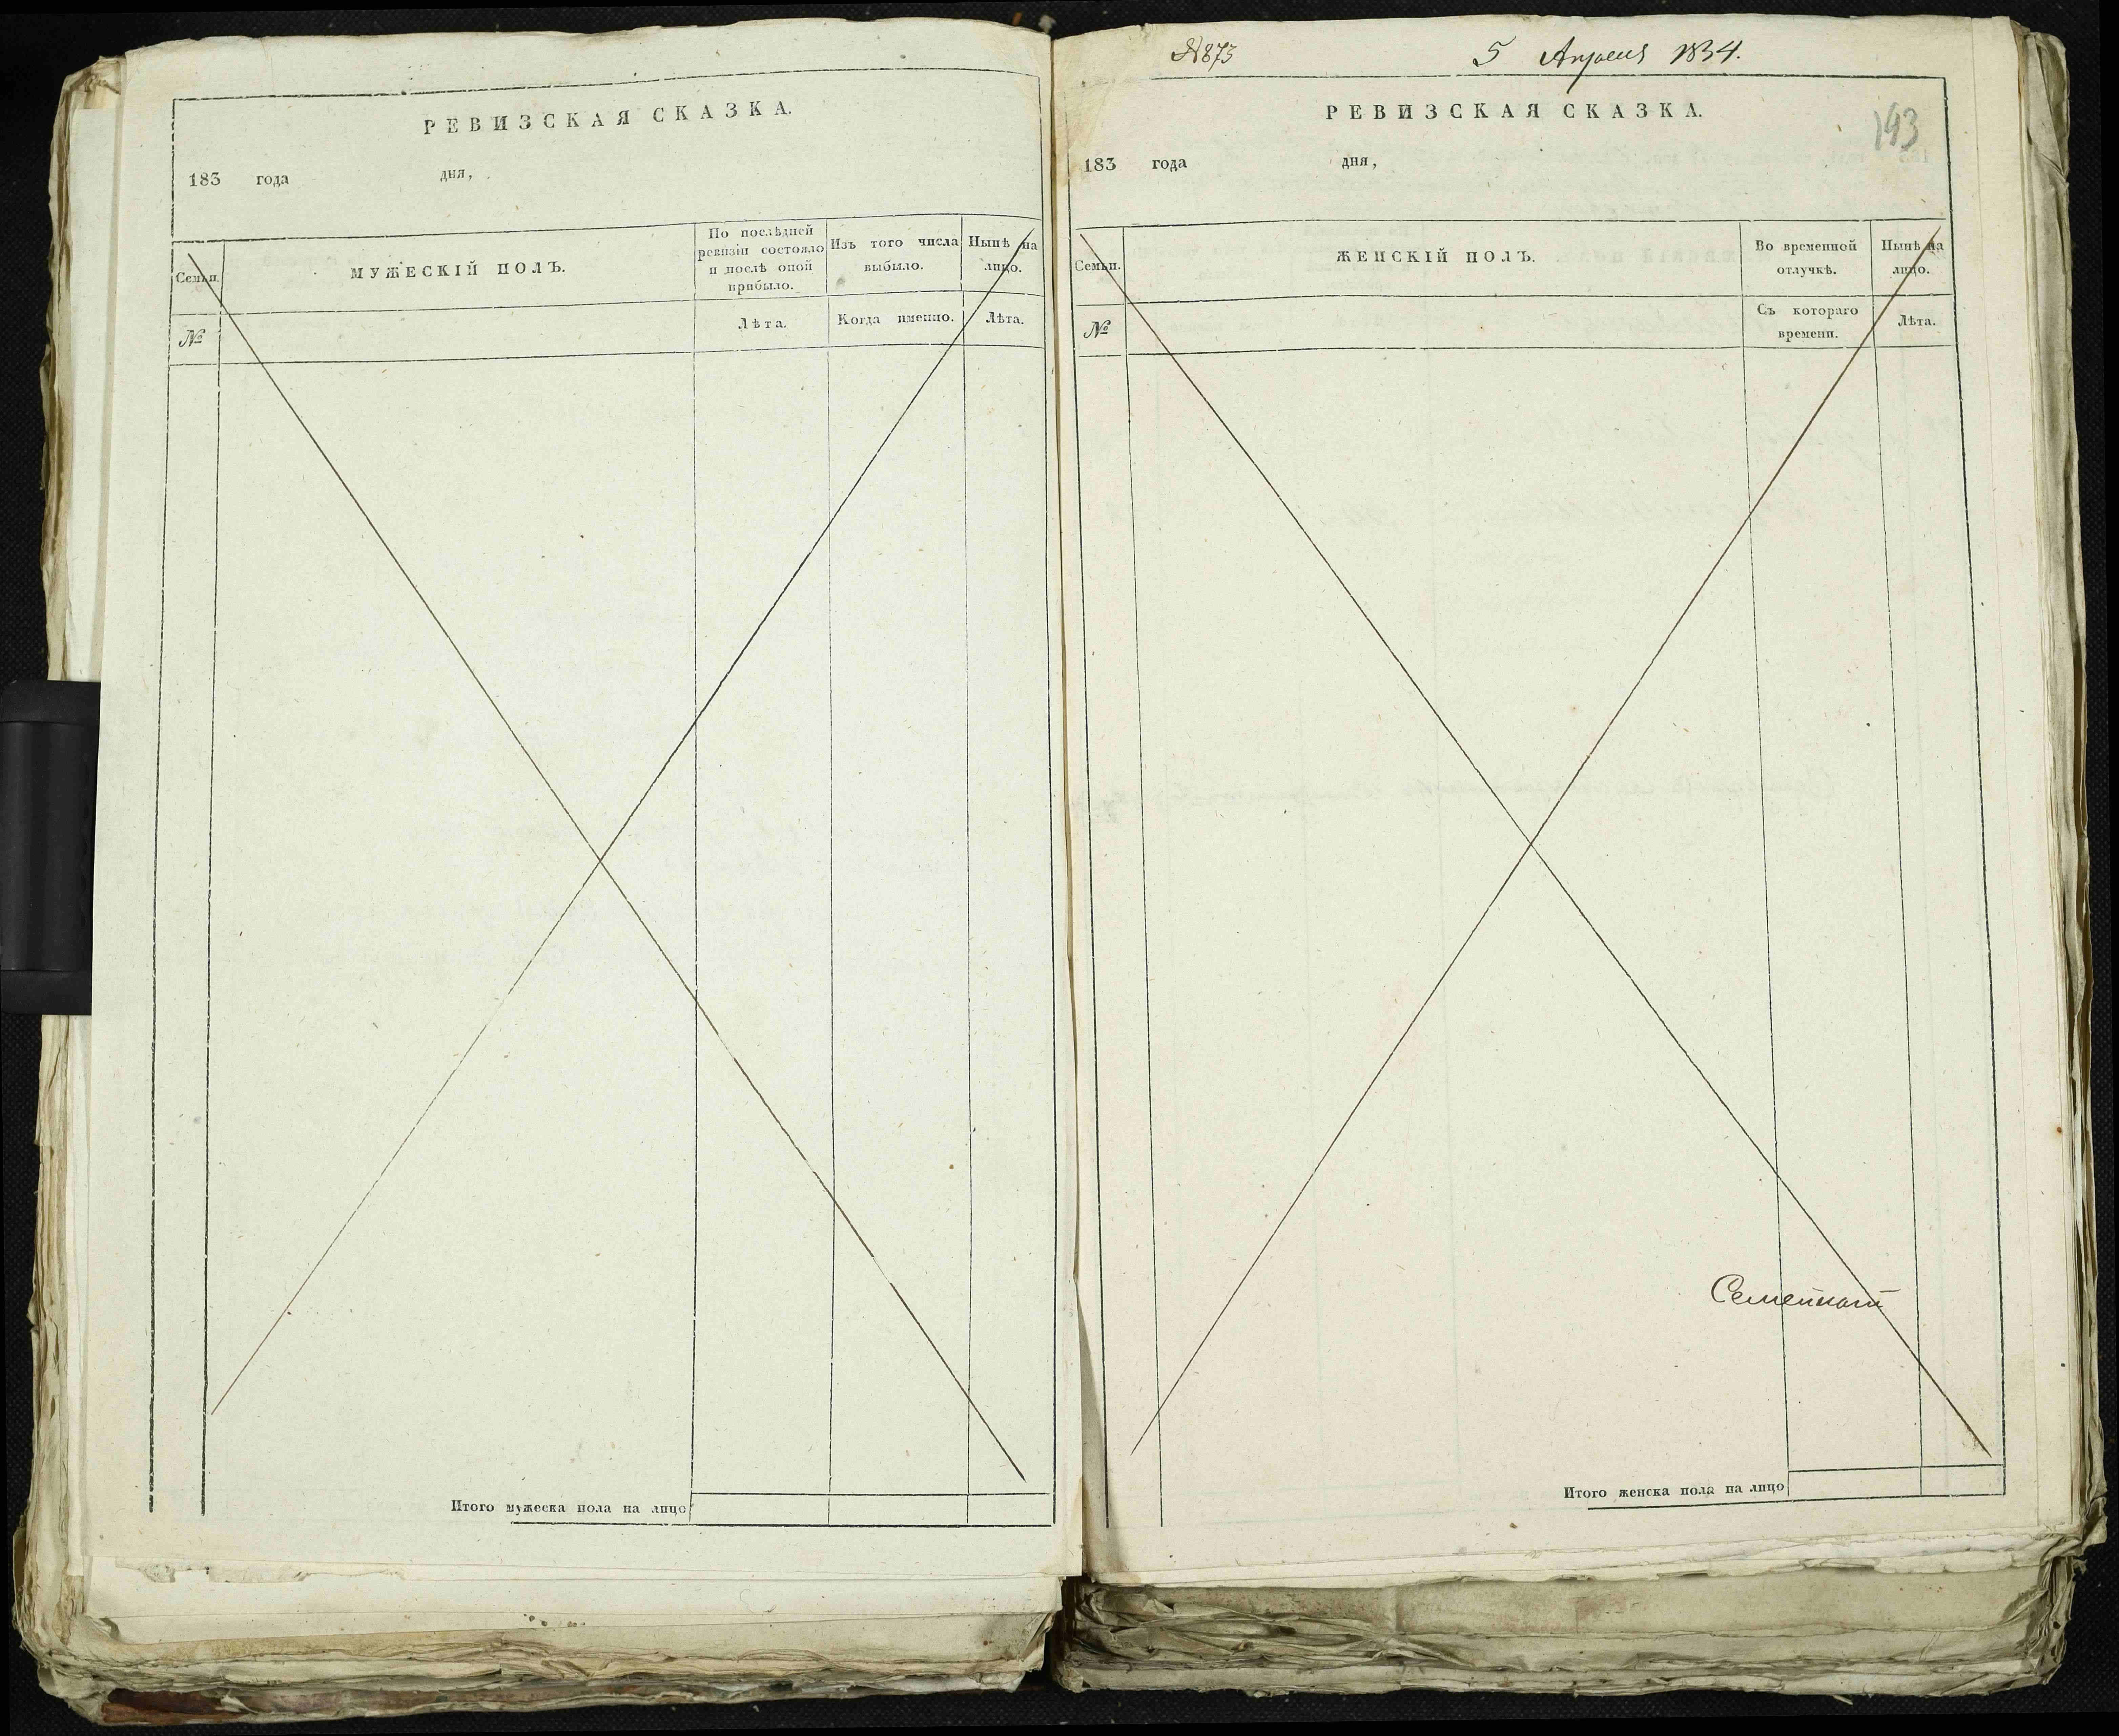 РЕВИЗСКАЯ СКАЗКА.
183 года дня,
Семьи.
МУЖЕСКІЙ ПОЛЪ.
По послѣдней
ревизіи состояло
и послѣ оной
прибыло.
Изъ того числа
выбыло.
Нынѣ на
лицо.
№
Лѣта.
Когда именно.
Лѣта.
Итого мужеска пола на лицо
№873 5 Апреля 1834.
РЕВИЗСКАЯ СКАЗКА.
193
183 года дня,
Семьи.
ЖЕНСКІЙ ПОЛЪ.
Во временной
отлучкѣ.
Нынѣ на
лицо.
№
Съ котораго
времени.
Лѣта.
Итого женска пола на лицо